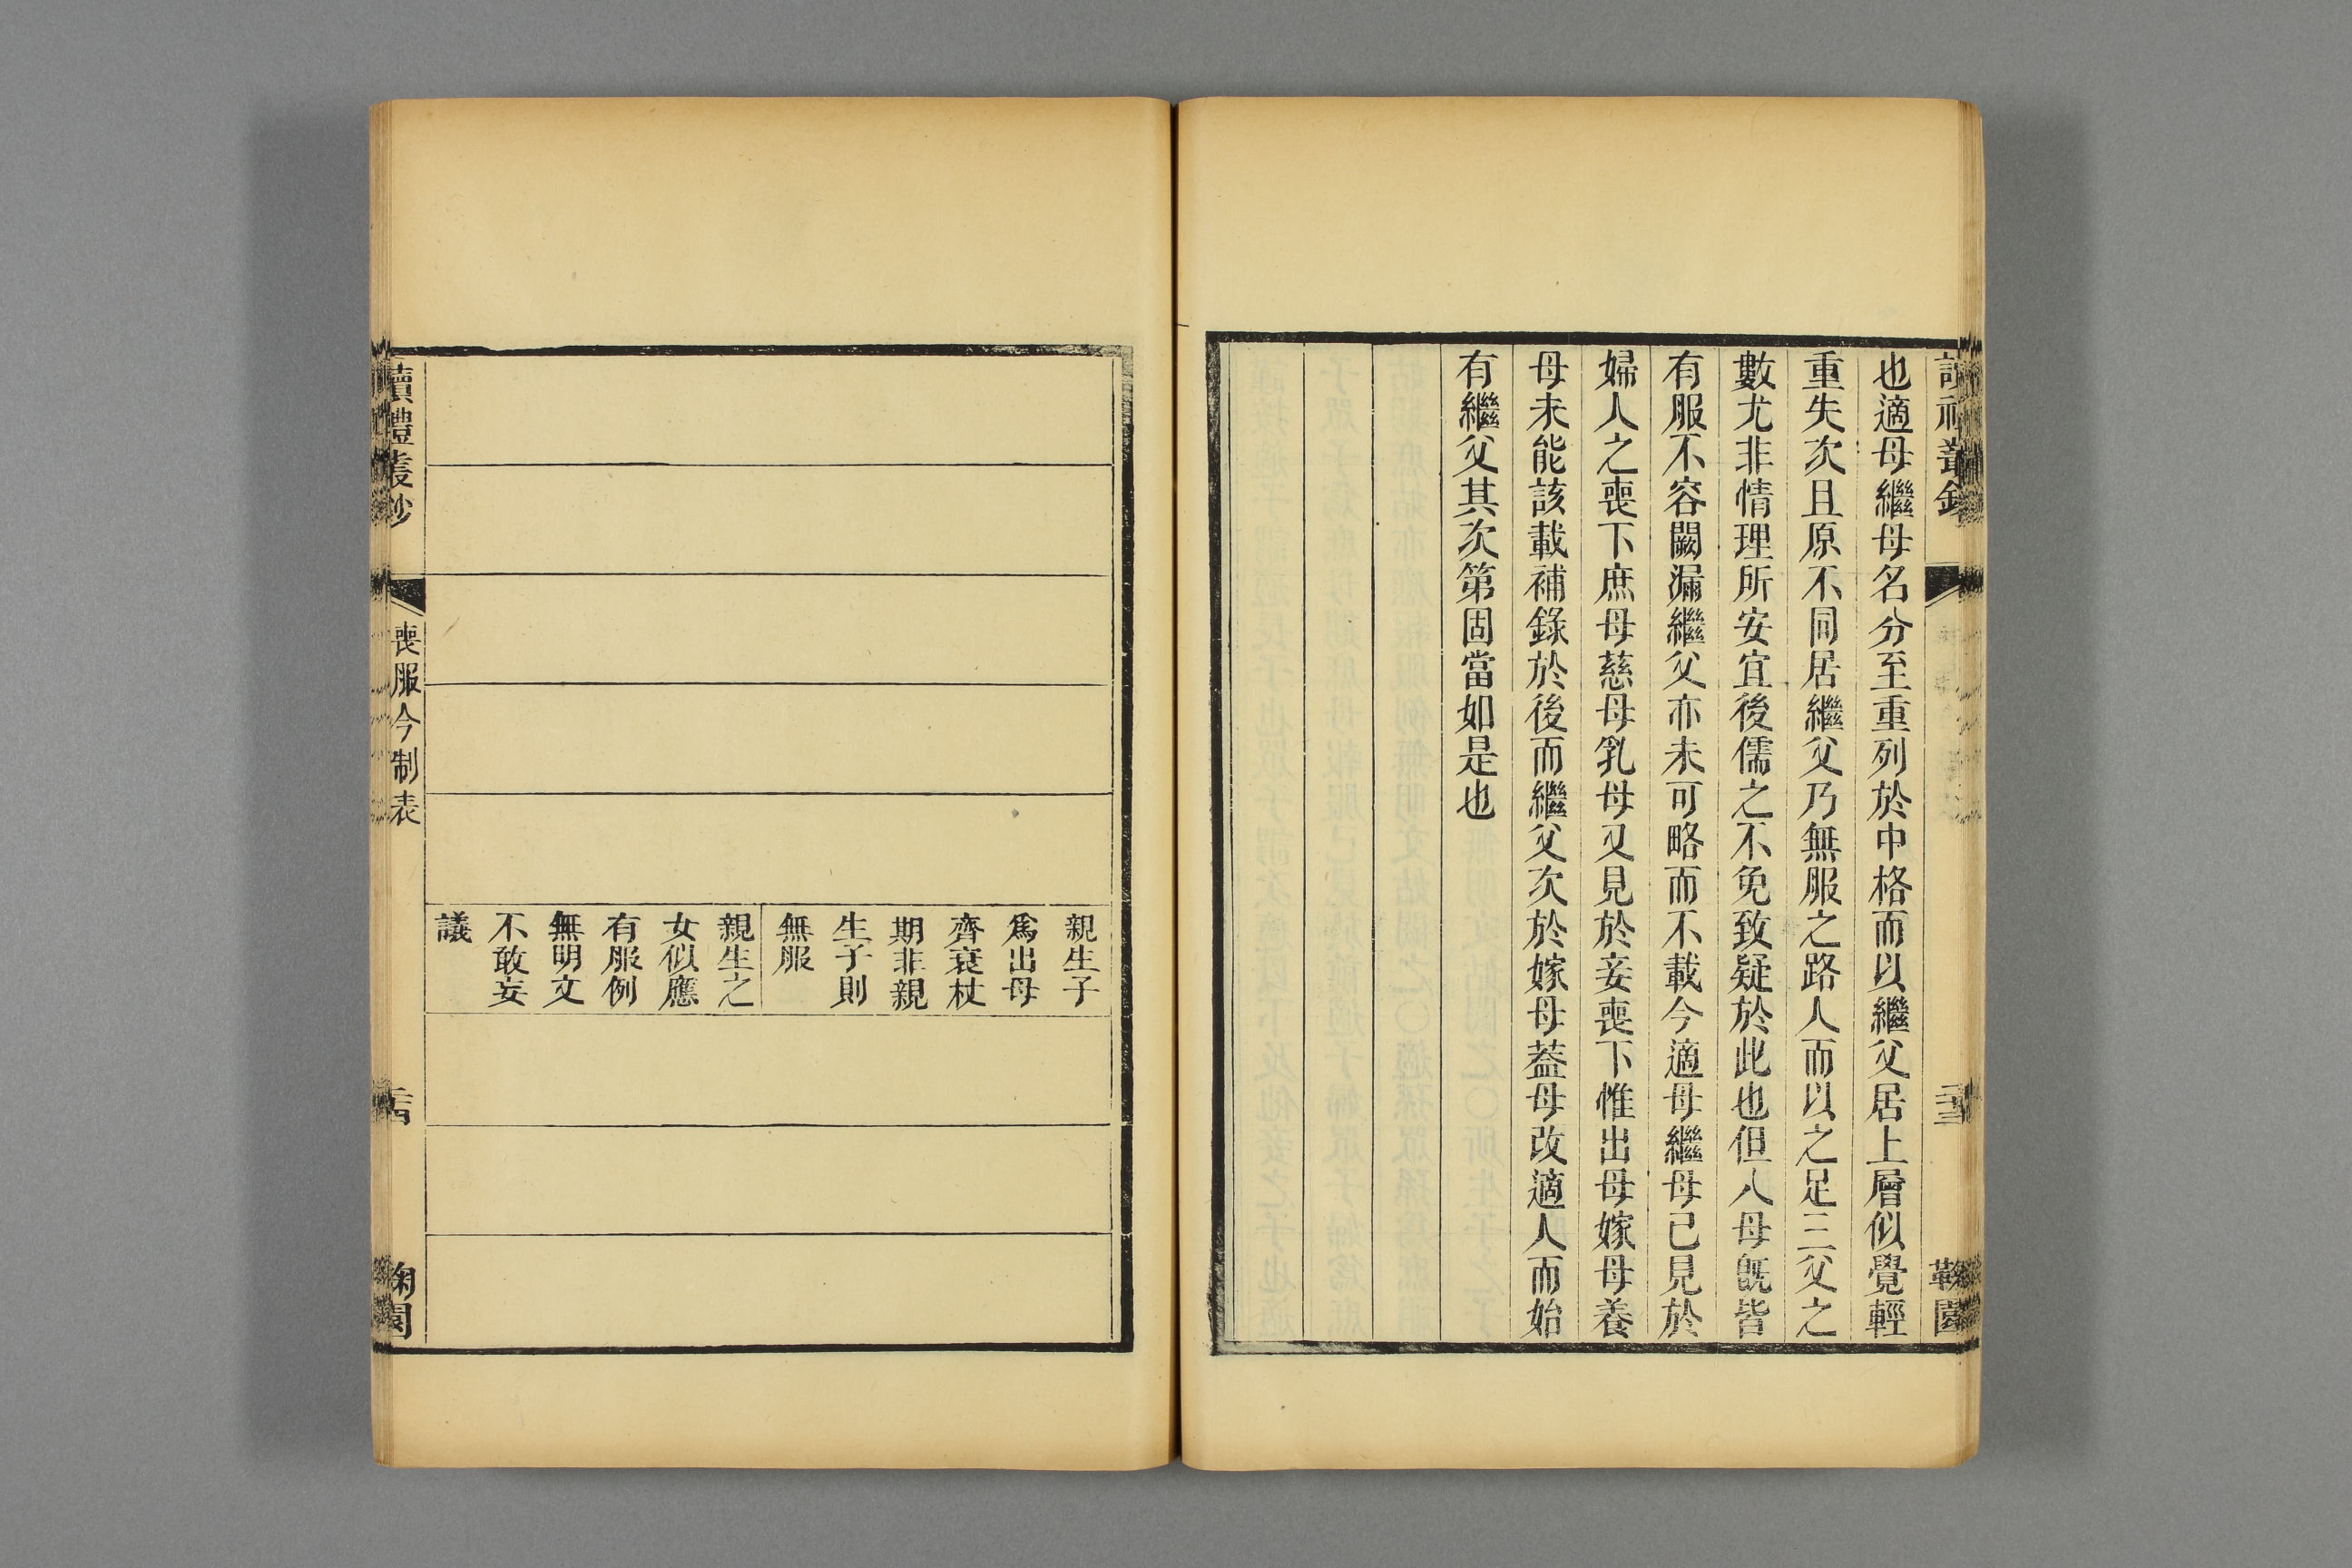 也適母繼母名分至重列於中格而以繼父居上層似覺輕
重失次且原不同居繼父乃無服之路人而以之足三父之
數尤非情理所安宜後儒之不免致疑於此也但八母旣皆
有服不容闕漏繼父亦未可略而不載今適母繼母已見於
婦人之喪下庶母慈母乳母又見於妾喪下惟出母嫁母養
母未能該載補錄於後而繼父次於嫁母蓋母改適人而始
有繼父其次第固當如是也
親生子
爲出母
齊衰杖
期非親
生子則
無服
親生之
女似應
有服例
無明文
不敢妄
議
讀禮叢鈔
喪服今制表
鞠園